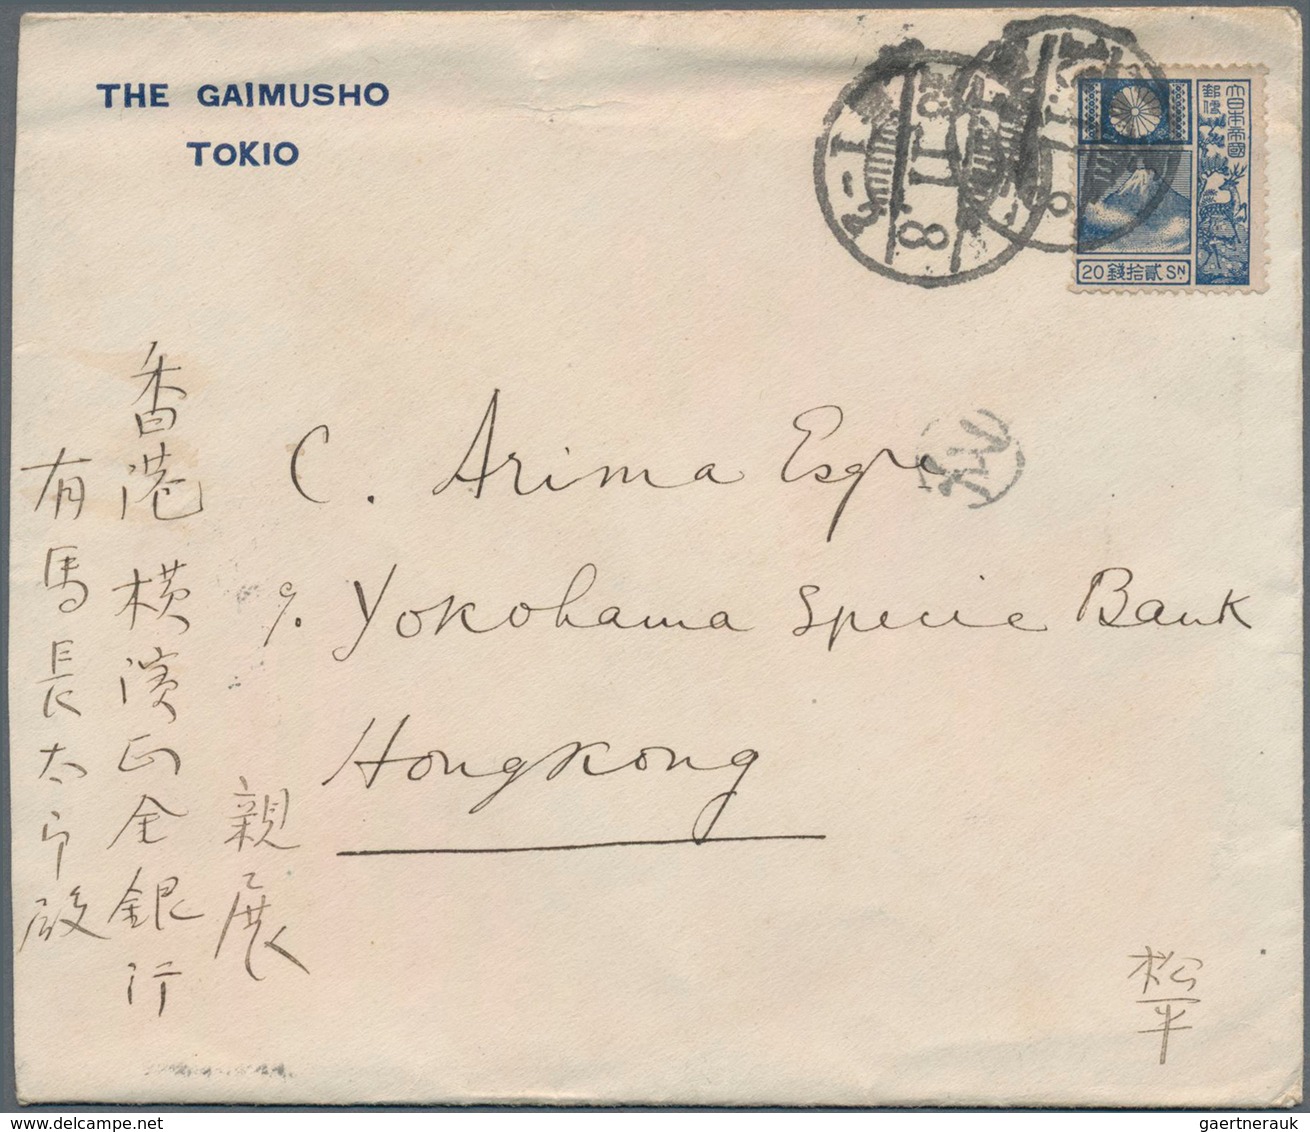 THE GAIMUSHO
TOKIO
大日本帝國
郵便
20 錢拾貳 SN
11.8
C. Arima Esqre
℅ Yokohama Specie Bank
Hongkong
親展
香港横濱正金銀行
有馬長太郎殿
松平
gaertnerauk